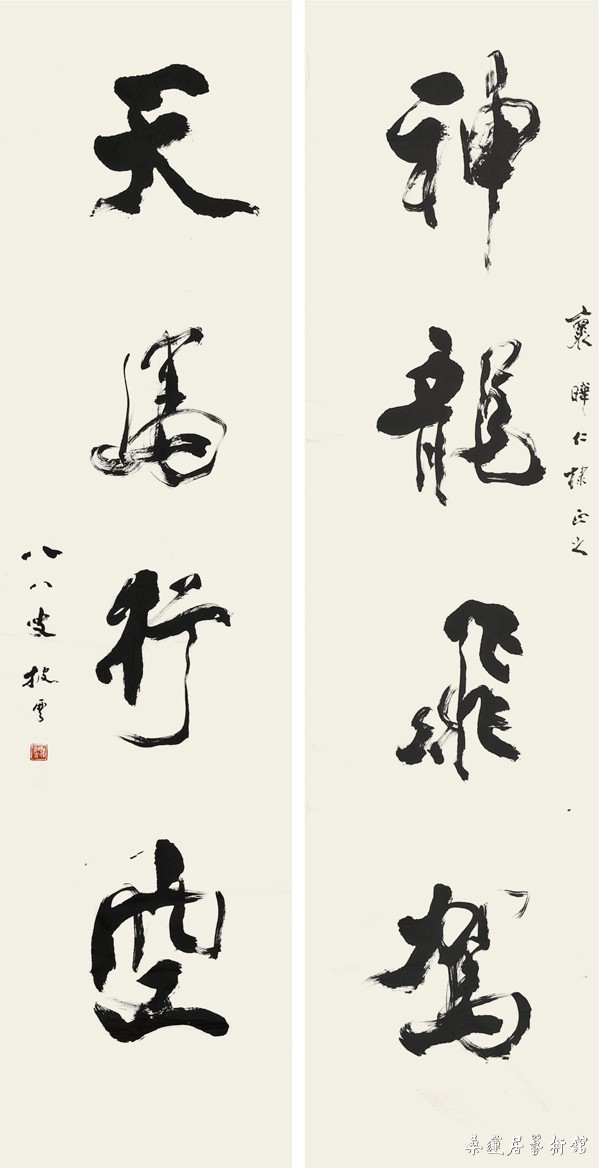 襄曄仁棣正之
神龍飛駕
天馬行空
八八叟 披雲
桑蓮居藝術館